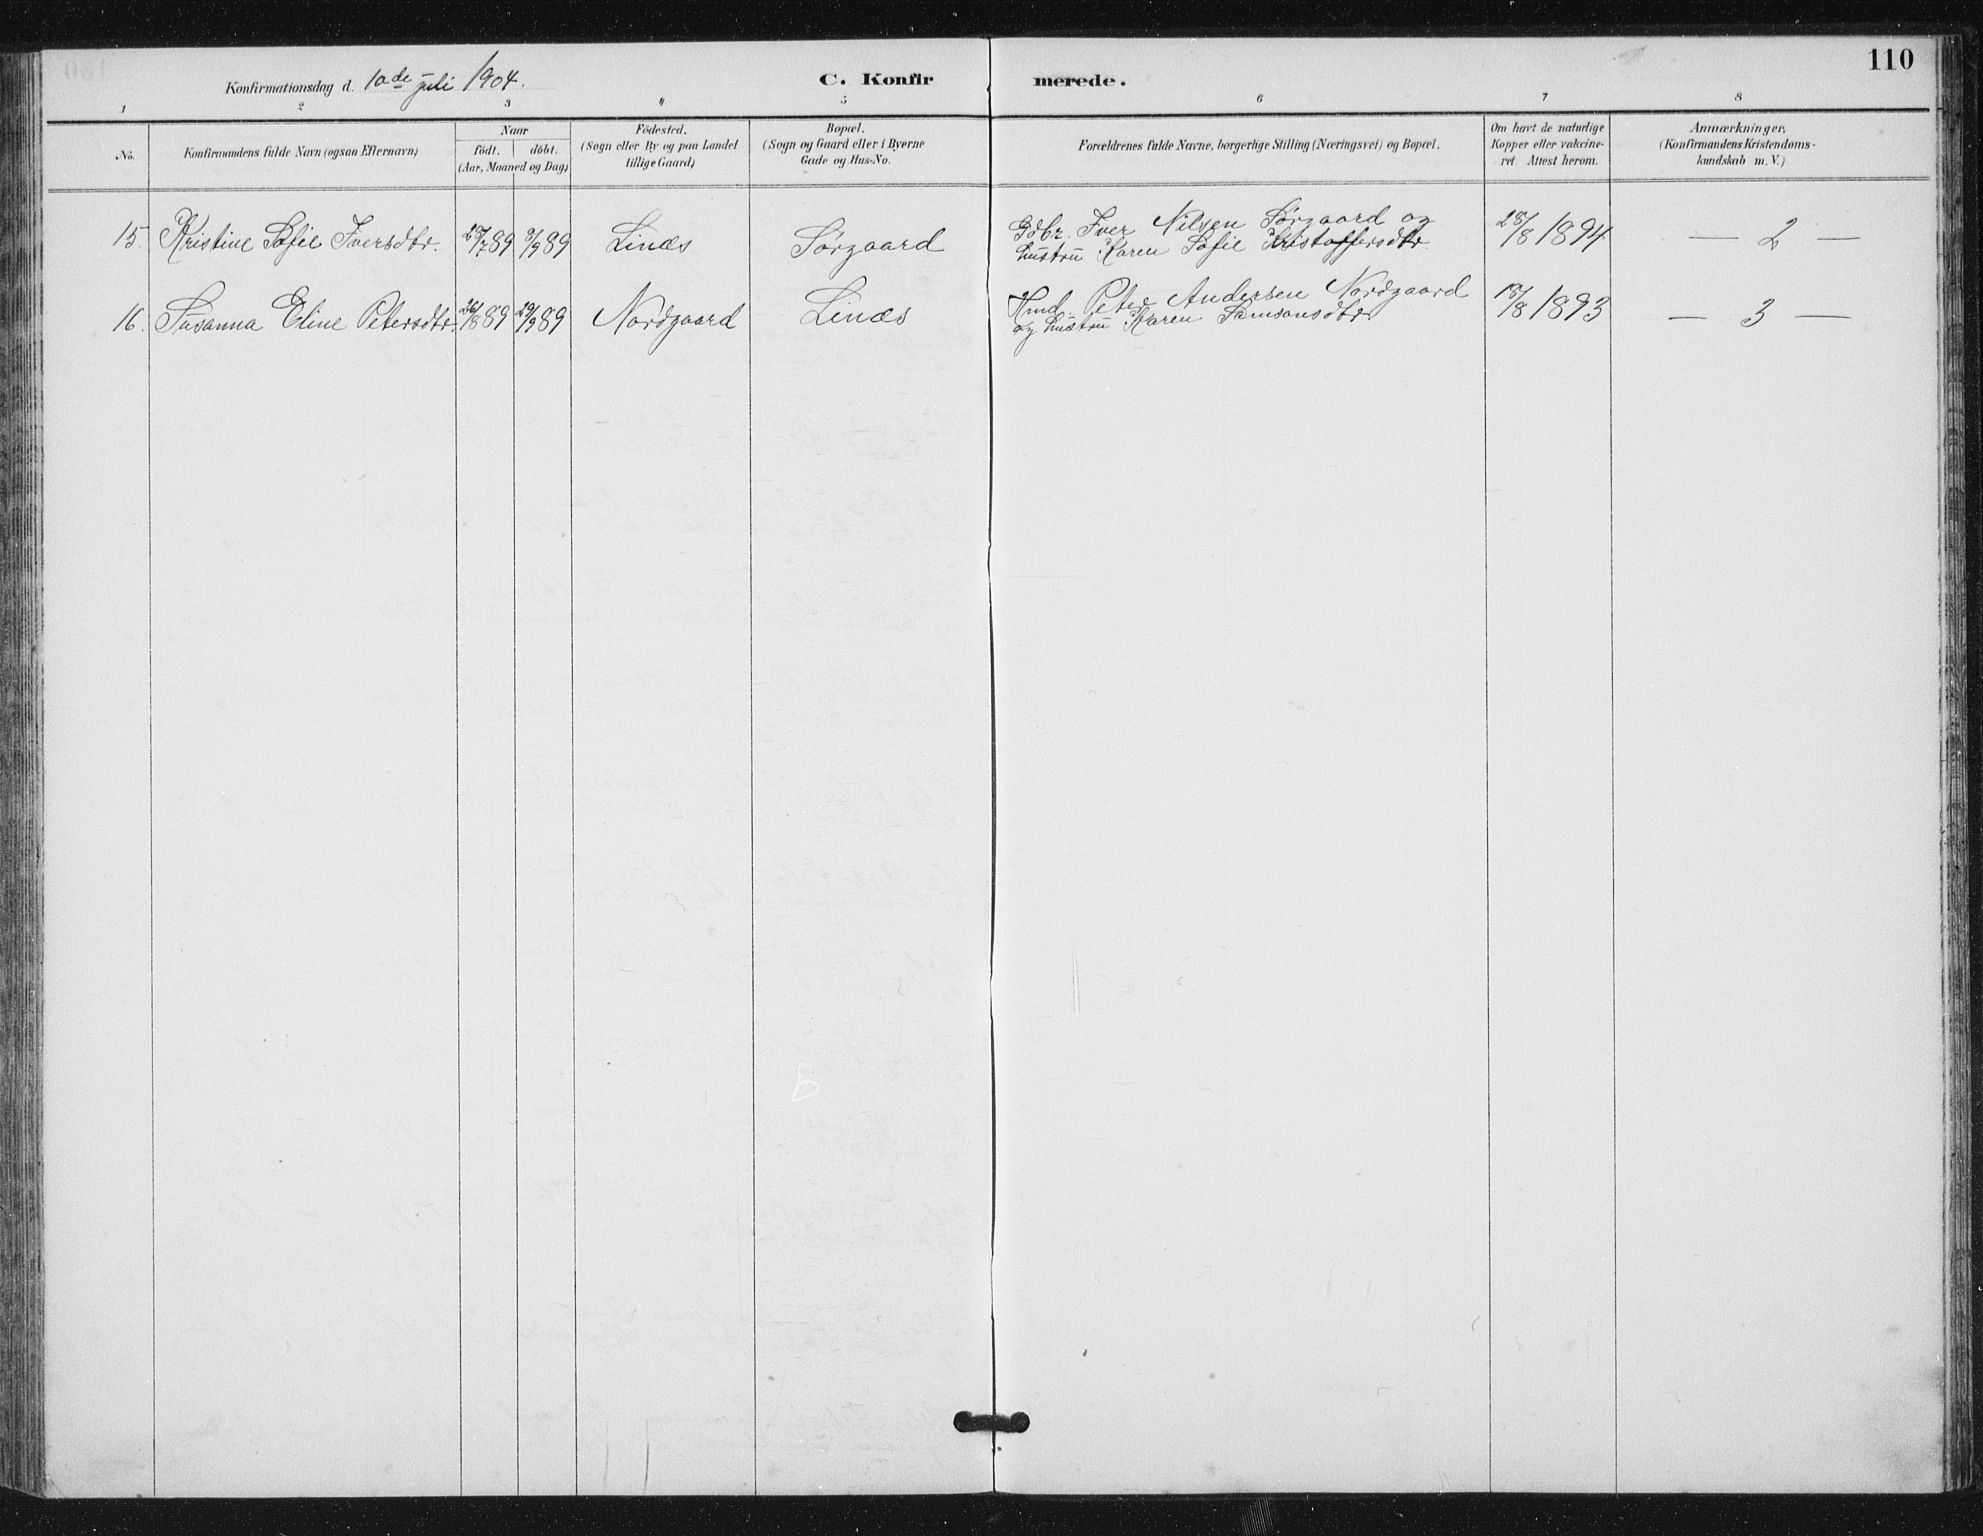 110
Konfirmationsdag d. 10de juli 1904.
C. Konfirmerede.
1 2 3 4 5 6 7 8
No.
Konfirmandens fulde Navn (ogsaa Efternavn)
Naar
födt. döbt.
(Aar, Maaned og Dag)
Födested.
(Sogn eller By og paa Landet
tillige Gaard)
Bopæl.
(Sogn og Gaard eller i Byerne
Gade og Hus-No.
Forældrenes fulde Navne, borgerlige Stilling (Næringsvei) og Bopæl.
Om havt de naturlige
Kopper eller vakcine-
ret. Attest herom.
Anmærkninger.
(Konfirmandens Kristendoms-
kundskab m. V.)
15. Kristine Sofie Iversdtr. /7 89 8/9 89 Linæs Sørgaard Gdbr. Iver Nilsen Sørgaard og
hustru Karen Sofie Kristoffersdtr. 28/8 1894 — 2 —
16. Susanna Eline Petersdtr. 26/8 89 29/9 89 Nordgaard Linæs Hmd. Peter Andersen Nordgaard
og hustru Karen Samsonsdtr. /8 1893 — 3 —